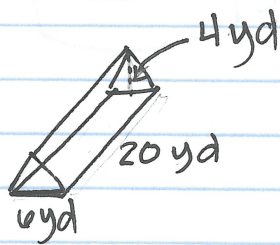 4yd
20 yd
6yd